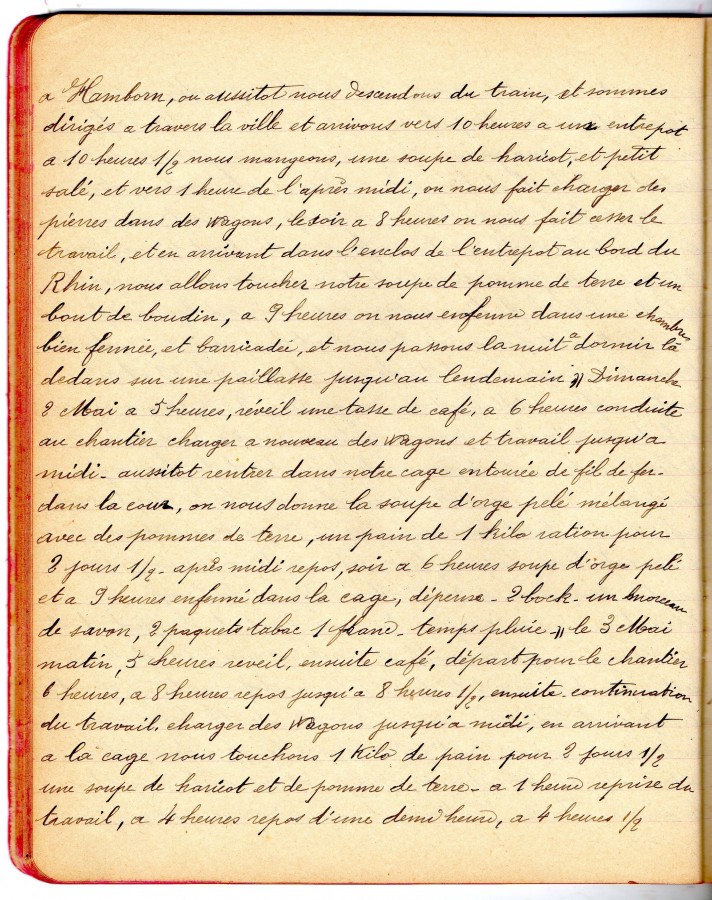 a Hamborn, ou aussitot nous descendons du train, et sommes
dirigés a travers la ville et arrivons vers 10 heures a un entrepot
a 10 heures 1/2 nous mangeons, une soupe de haricot, et petit
salé, et vers 1 heure de l'après midi, on nous fait charger des
pierres dans des wagons, le soir a 8 heures on nous fait cesser le
travail, et en arrivant dans l'enclos de l'entrepot au bord du
Rhin, nous allons toucher notre soupe de pomme de terre et un
bout de boudin, a 9 heures on nous enferme dans une chambre
bien fermée, et barricadée, et nous passons la nuit a dormir là
dedans sur une paillasse jusqu'au lendemain  // Dimanche
2 Mai a 5 heures, réveil une tasse de café, a 6 heures conduite
au chantier charger a nouveau des wagons et travail jusqu'a
midi - aussitot rentrer dans notre cage entourée de fil de fer -
dans la cour, on nous donne la soupe d'orge pelé mélangé
avec des pommes de terre, un pain de 1 kilo ration pour
2 jours 1/2 - après midi repos, soir a 6 heures soupe d'orge pelé
et a 9 heures enfermé dans la cage, dépense - 2 bock - un morceau
de savon, 2 paquets tabac 1 franc - temps pluie - // le 3 Mai
matin, 5 heures reveil, ensuite café, départ pour le chantier
6 heures, a 8 heures repos jusqu'a 8 heures 1/2, ensuite - continuation
du travail, charger des wagons jusqu'a midi, en arrivant
a la cage nous touchons 1 Kilo de pain pour 2 jours 1/2
une soupe de haricot et de pomme de terre - a 1 heure reprise du
travail, a 4 heures repos d'une demi heure, a 4 heures 1/2